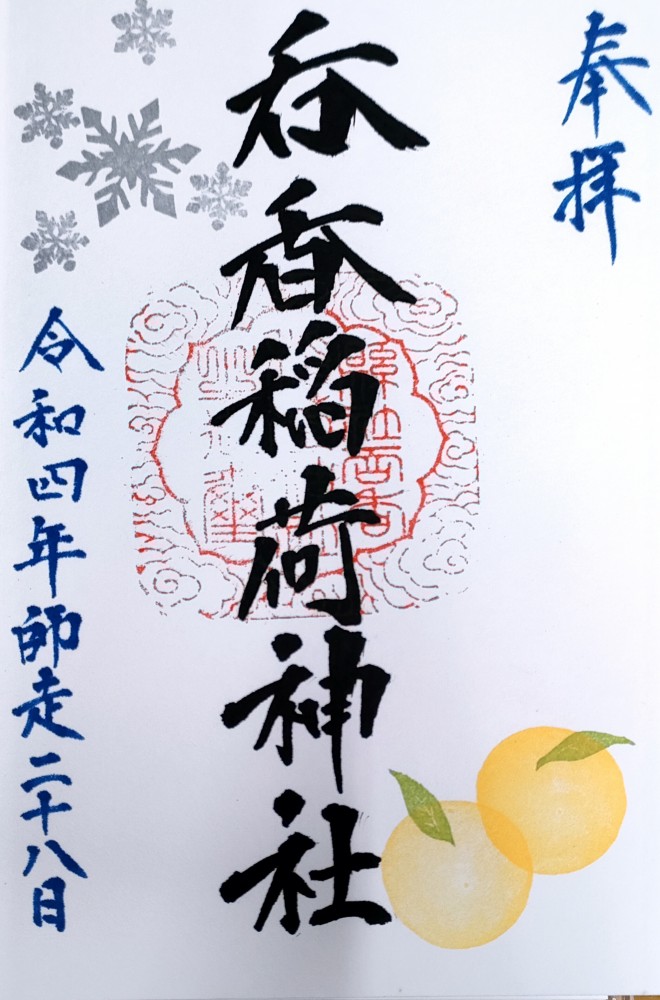 奉拝
呑香稲荷神社
令和四年師走二十八日